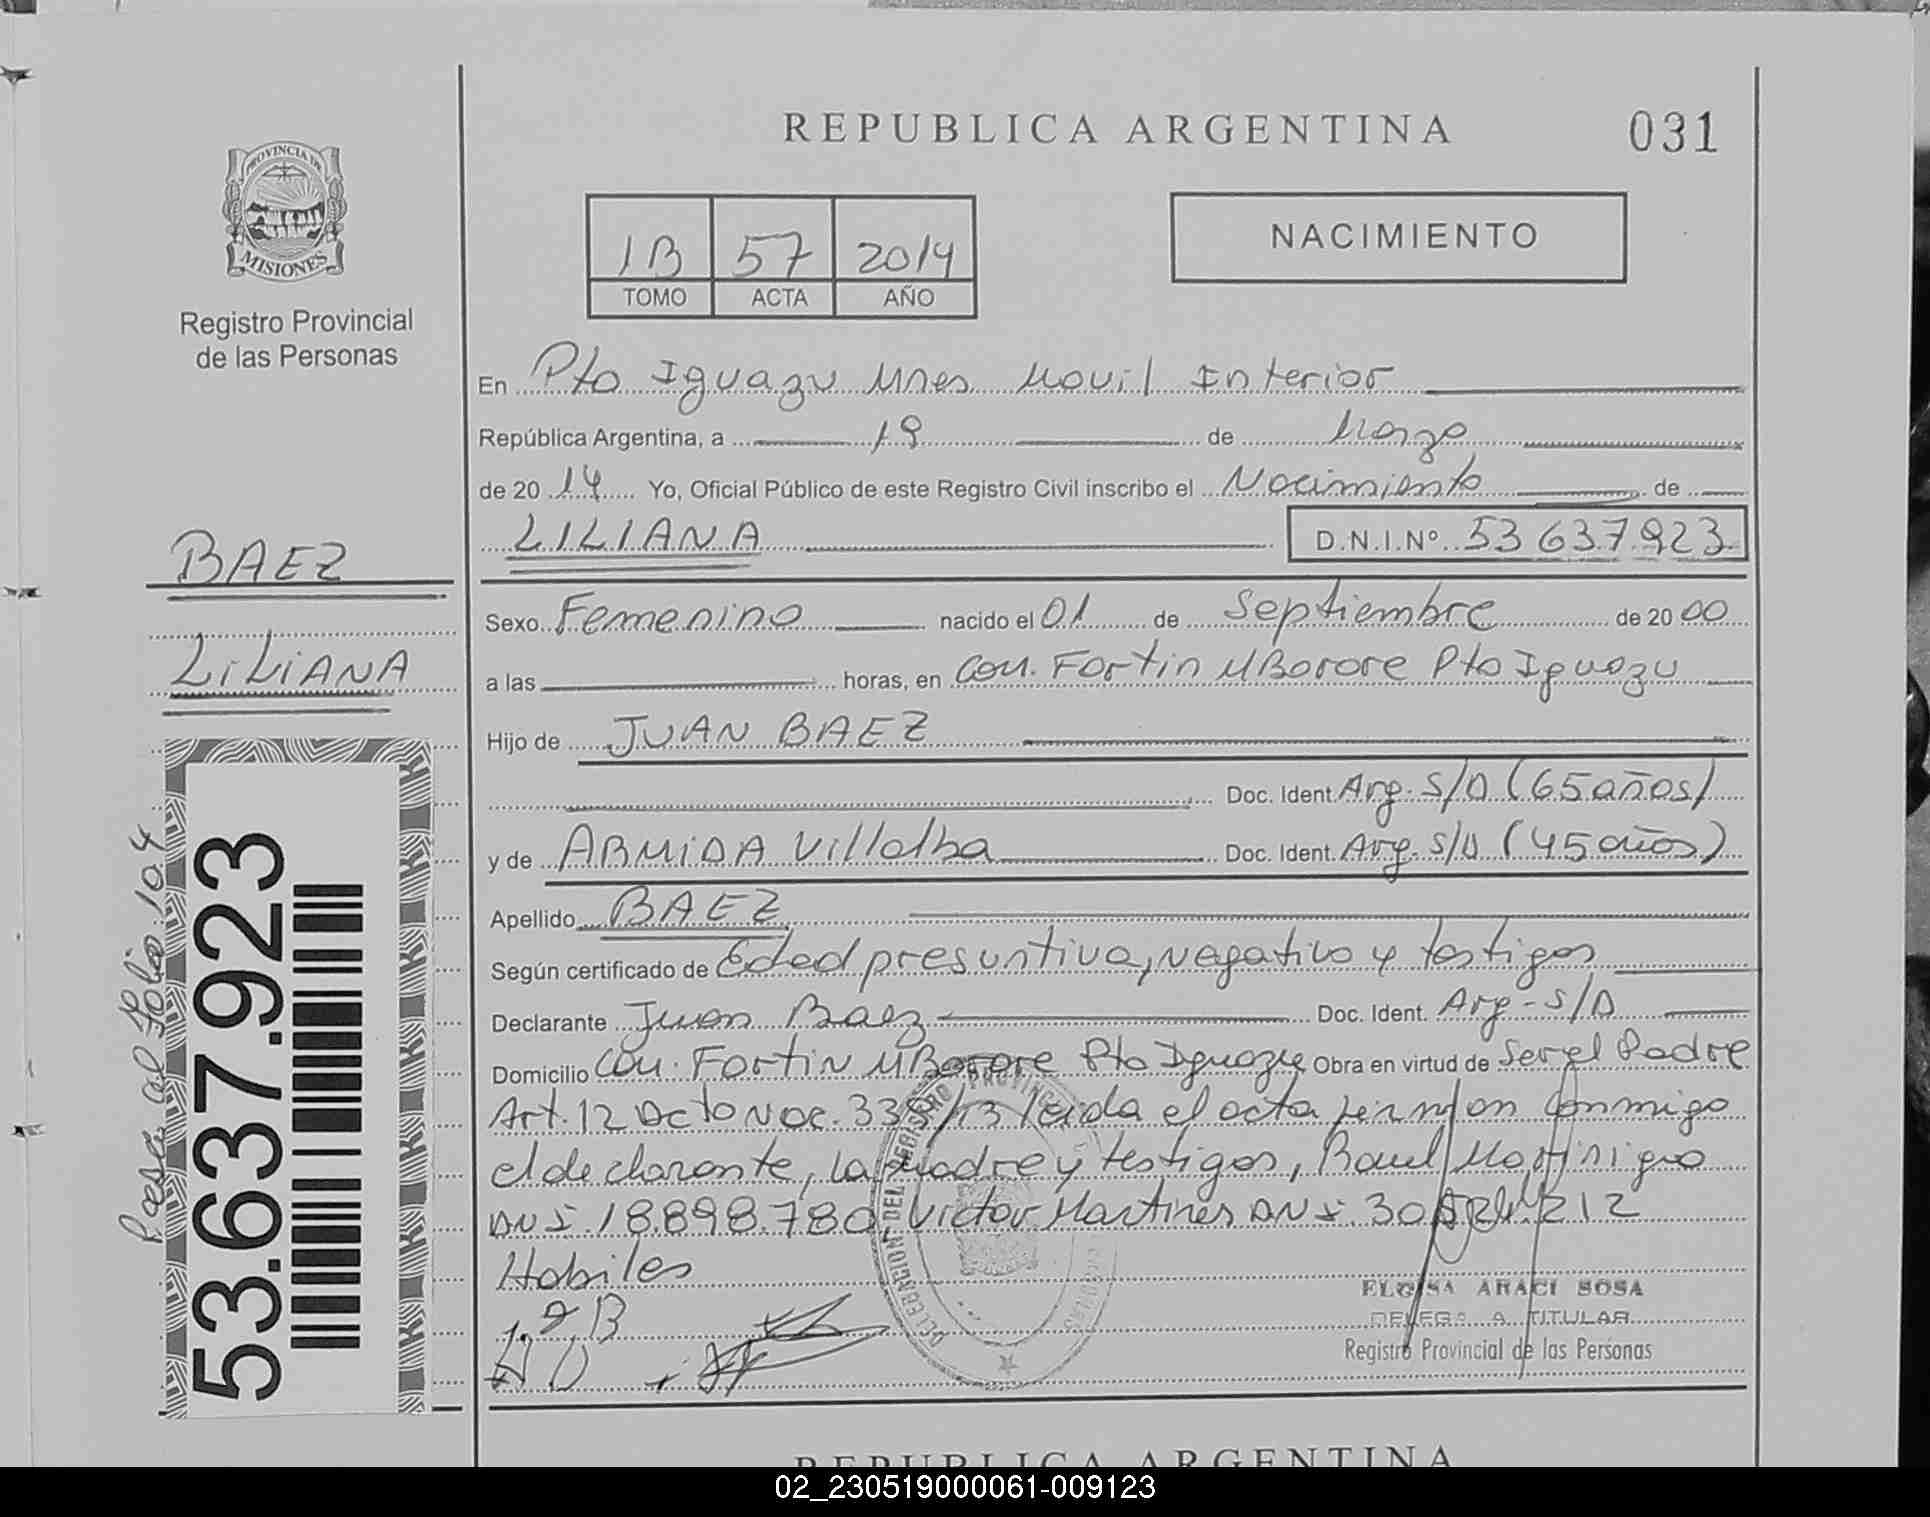 REPUBLICA ARGENTINA
031
PROVINCIA DE
MISIONES
Registro Provincial
de las Personas
1B 57 2014
TOMO ACTA AÑO
NACIMIENTO
En Pto Iguazu Mnes Movil Interior
República Argentina, a 19 de Marzo
de 2014 Yo, Oficial Público de este Registro Civil inscribo el Nacimiento de
LILIANA D.N.I.Nº 53 637.923
BAEZ
LILIANA
Sexo Femenino nacido el 01 de Septiembre de 2000
a las horas, en Com. Fortin MBorore Pto Iguazu
Hijo de JUAN BAEZ
Doc. Ident. Arg. S/D (65 años)
y de ARMIDA Villalba Doc. Ident. Arg. S/D (45 años)
Apellido BAEZ
Según certificado de Edad presuntiva, negativo y testigos
Declarante Juan Baez Doc. Ident. Arg - S/D
Domicilio Com. Fortin MBorore Pto Iguazu Obra en virtud de Ser el Padre
Art. 12 Dcto Nac. 339/13 leida el acta firman conmigo
el declarante, la madre y testigos, Raul Martinigno
DNI. 18.898.780, Victor Martines DNI. 212
Habiles
Pasa al Folio 104
53.637.923
DELEGACION DEL REGISTRO PROVINCIAL
ELOISA ARACI SOSA
DELEGADA TITULAR
Registro Provincial de las Personas
REPUBLICA ARGENTINA
02_230519000061-009123